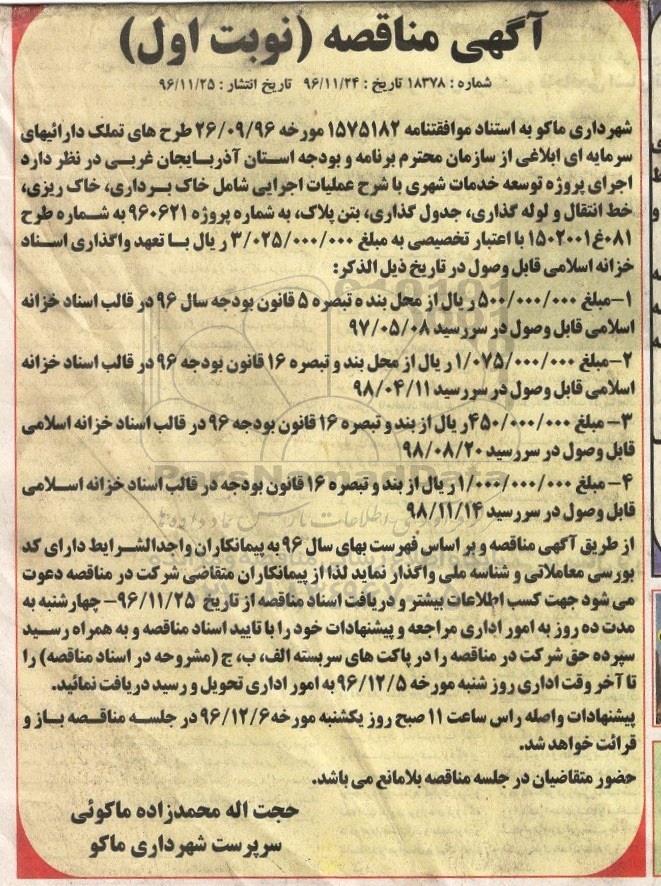 آگهی مناقصه (نوبت اول)
شماره : ۱۸۳۷۸ تاریخ : ۹۶/۱۱/۲۴ تاریخ انتشار : ۹۶/۱۱/۲۵
شهرداری ماکو به استناد موافقتنامه ۱۵۷۵۱۸۲ مورخه ۲۶/۰۹/۹۶ طرح های تملک دارائیهای
سرمایه ای ابلاغی از سازمان محترم برنامه و بودجه استان آذربایجان غربی در نظر دارد
اجرای پروژه توسعه خدمات شهری با شرح عملیات اجرایی شامل خاک برداری، خاک ریزی،
خط انتقال و لوله گذاری، جدول گذاری، بتن پلاک، به شماره پروژه ۹۶۰۶۲۱ به شماره طرح
۱۵۰۲۰۰۱غ۰۸۱ با اعتبار تخصیصی به مبلغ ۳/۰۲۵/۰۰۰/۰۰۰ ریال با تعهد واگذاری اسناد
خزانه اسلامی قابل وصول در تاریخ ذیل الذکر:
۱-مبلغ ۵۰۰/۰۰۰/۰۰۰ ریال از محل بند ه تبصره ۵ قانون بودجه سال ۹۶ در قالب اسناد خزانه
اسلامی قابل وصول در سررسید ۹۷/۰۵/۰۸
۲-مبلغ ۱/۰۷۵/۰۰۰/۰۰۰ ریال از محل بند و تبصره ۱۶ قانون بودجه ۹۶ در قالب اسناد خزانه
اسلامی قابل وصول در سررسید ۹۸/۰۴/۱۱
۳- مبلغ ۴۵۰/۰۰۰/۰۰۰ریال از بند و تبصره ۱۶ قانون بودجه ۹۶ در قالب اسناد خزانه اسلامی
قابل وصول در سررسید ۹۸/۰۸/۲۰
۴- مبلغ ۱/۰۰۰/۰۰۰/۰۰۰ ریال از بند و تبصره ۱۶ قانون بودجه در قالب اسناد خزانه اسلامی
قابل وصول در سررسید ۹۸/۱۱/۱۴
ParsNamadData
از طریق آگهی مناقصه و بر اساس فهرست بهای سال ۹۶ به پیمانکاران واجدالشرایط دارای کد
بورسی معاملاتی و شناسه ملی واگذار نماید لذا از پیمانکاران متقاضی شرکت در مناقصه دعوت
می شود جهت کسب اطلاعات بیشتر و دریافت اسناد مناقصه از تاریخ ۹۶/۱۱/۲۵- چهارشنبه به
مدت ده روز به امور اداری مراجعه و پیشنهادات خود را با تایید اسناد مناقصه و به همراه رسید
سپرده حق شرکت در مناقصه را در پاکت های سربسته الف، ب، ج (مشروحه در اسناد مناقصه) را
تا آخر وقت اداری روز شنبه مورخه ۹۶/۱۲/۵ به امور اداری تحویل و رسید دریافت نمائید.
پیشنهادات واصله راس ساعت ۱۱ صبح روز یکشنبه مورخه ۹۶/۱۲/۶ در جلسه مناقصه باز و
قرائت خواهد شد.
حضور متقاضیان در جلسه مناقصه بلامانع می باشد.
حجت اله محمدزاده ماکوئی
سرپرست شهرداری ماکو